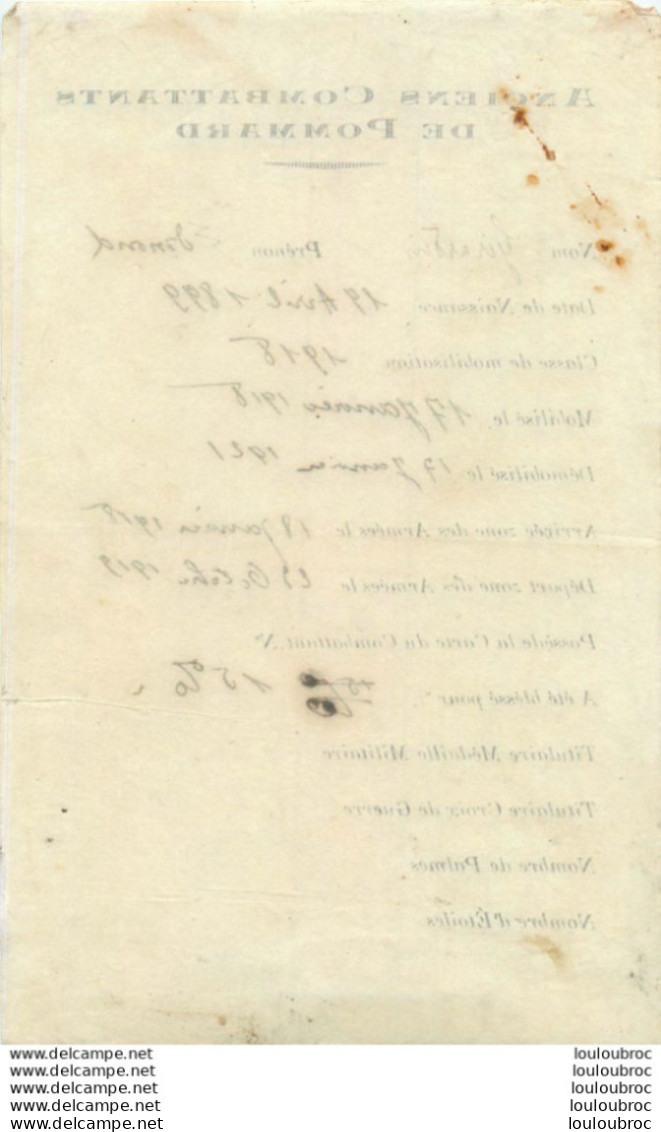 ANCIENS COMBATTANTS
DE POMMARD
Nom Prénom Edmond
Date de Naissance 19 Avril 1899
Classe de mobilisation 1918
Mobilisé le 17 Janvier 1918
Démobilisé le 17 Janvier 1921
Arrivée zone des Armées le 18 Janvier 1918
Départ zone des Armées le 23 Octobre 1919
Possède la Carte du Combattant N°
A été blessé pour 15%
Titulaire Médaille Militaire
Titulaire Croix de Guerre
Nombre de Palmes
Nombre d'Étoiles
www.delcampe.net louloubroc
www.delcampe.net louloubroc
www.delcampe.net louloubroc
www.delcampe.net louloubroc
www.delcampe.net louloubroc